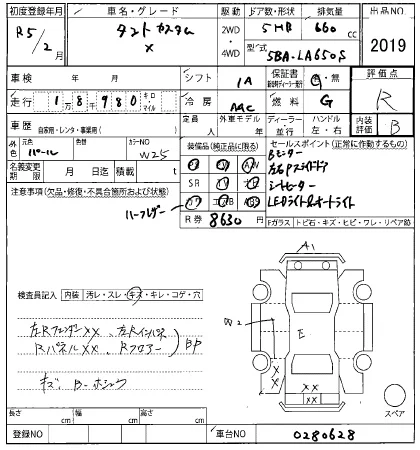 初度登録年月 車名・グレード 駆動 ドア数・形状 排気量 出品NO
R5/2月 タントカスタム X 2WD・4WD 5HB 660cc 2019
型式 5BA-LA650S
車検 年 月 シフト IA 保証書 有・無 評価点
走行 1万8千980 キロ・マイル 冷房 AAC 燃料 G R
車歴 自家用・レンタ・事業用( ) 定員 人 外車モデル 年 ディーラー 並行 ハンドル 左・右 内装評価 B
外色 元色 パール 色替 カラーNO W25
装備品(純正品に限る) セールスポイント(正常に作動するもの)
名義変更期限 月 日 積載 t
Bモニター
左右Pスライドドア
シートヒーター
LEDライト オートライト
SR
注意事項(欠品・修復・不具合箇所および状態)
ハーフレザー
R券 8630円
Fガラス トビ石・キズ・ヒビ・ワレ・リペア跡
A1
検査員記入 内装 汚レ・スレ・キズ・キレ・コゲ・穴
W2
E
左RフェンダーXX、左Rインパネ
RパネルXX、Rフロアー
BP
XX
XX
キズ B-ホシュウ
スペア
長さ cm 幅 cm 高さ cm
登録NO 車台NO 0280628